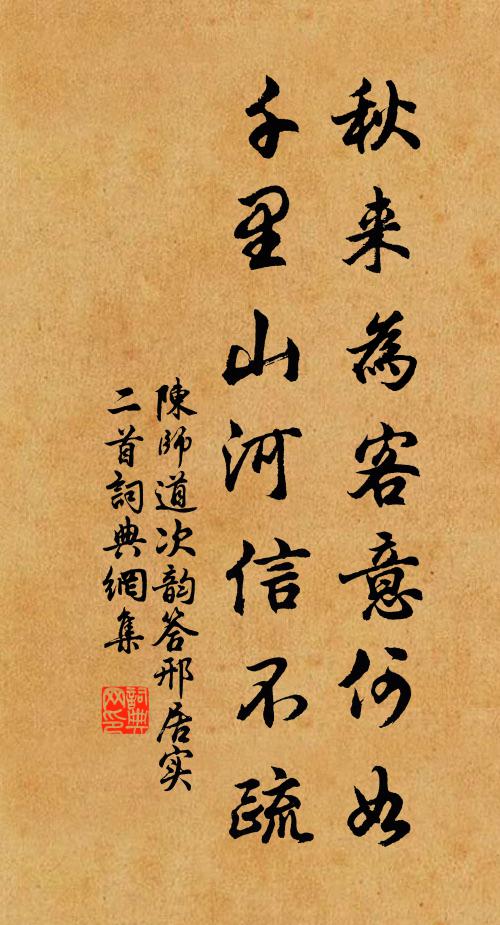 秋来為客意何如
千里山河信不疏
陳師道次韵答邢居实
二首詞典網集
詞典网印